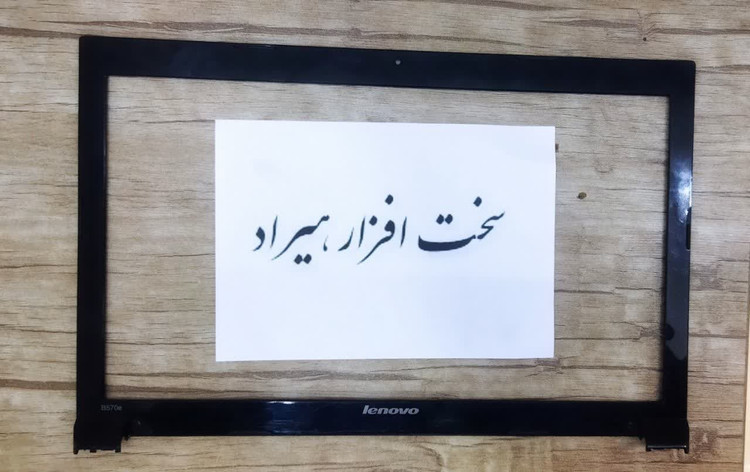 سخت افزار هیراد
B570e
lenovo